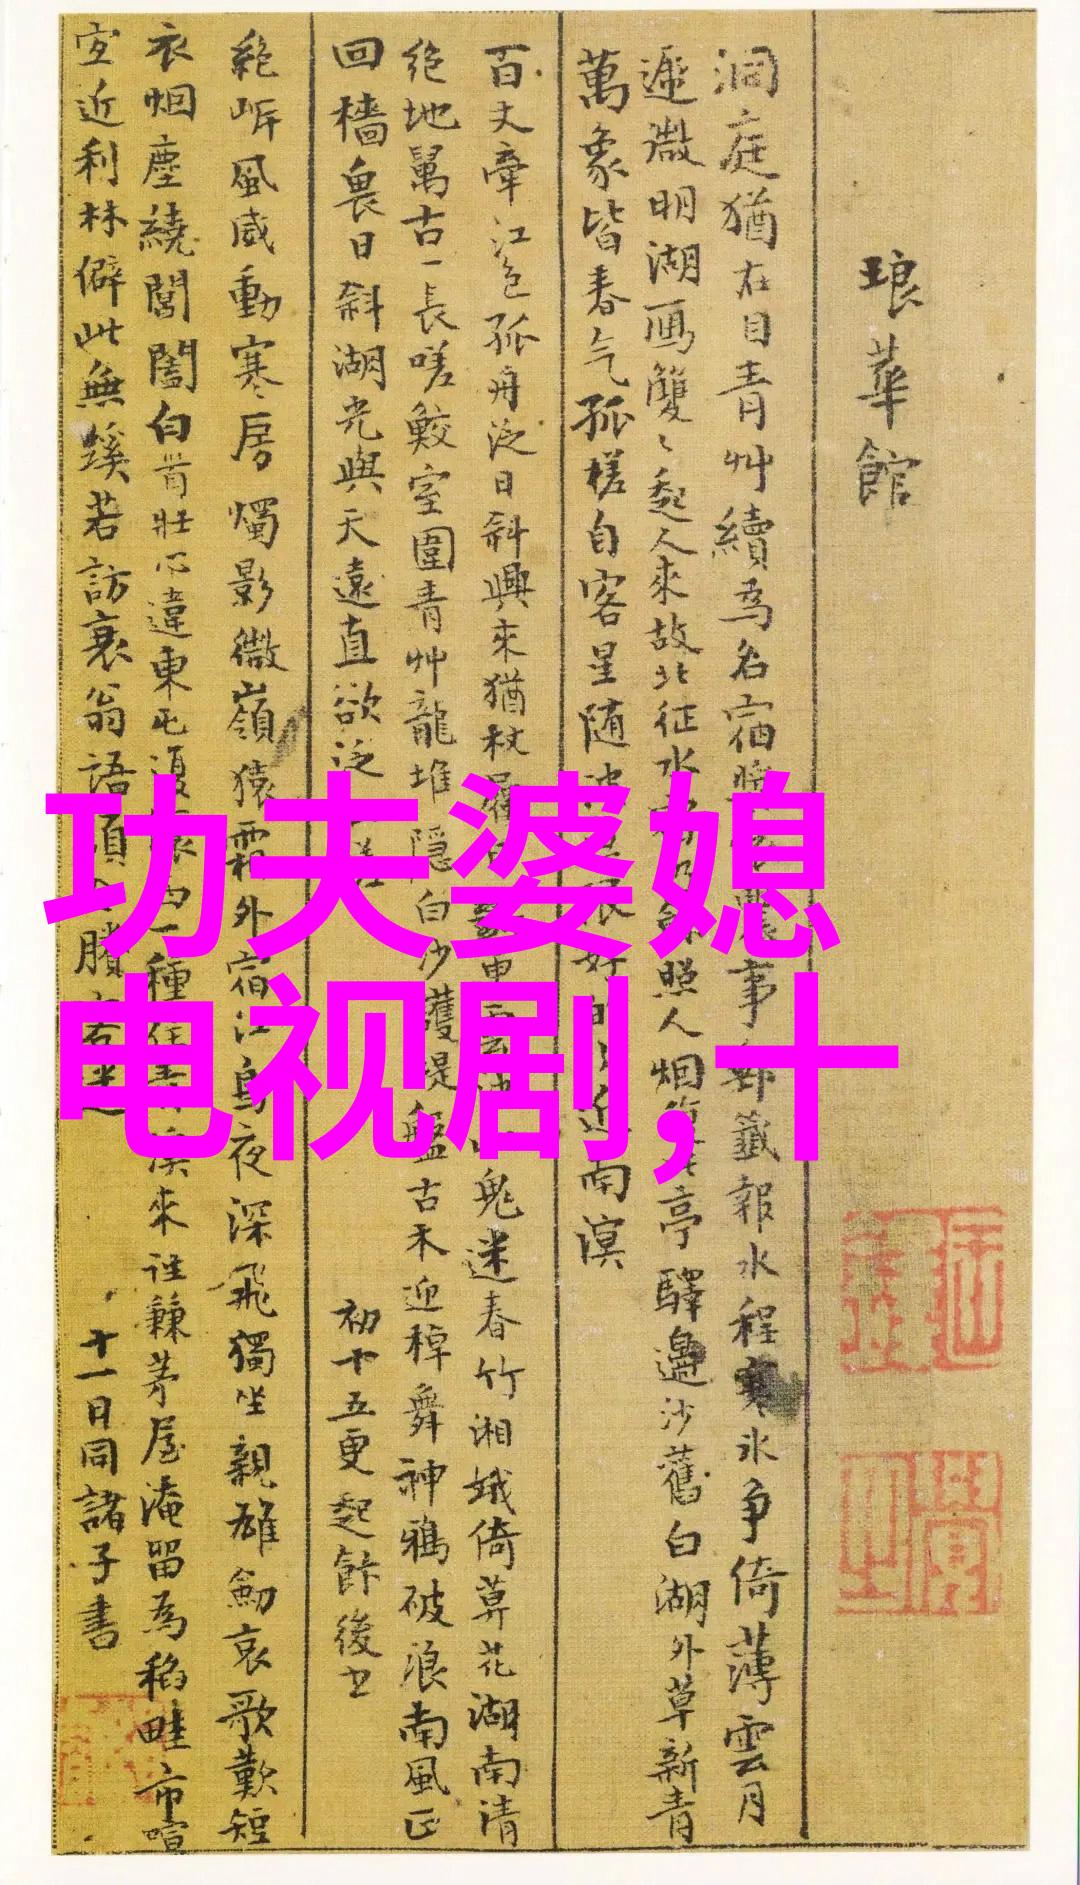 琅華館
洞庭猶在目青艸續為名宿 農事 籤報水程 水争倚薄雲月
遞微明湖鴈雙〻起人來故北征水 照人烟 亭驛邉沙舊白湖外草新青
萬象皆春气孤槎自客星随波 近南溟
百丈牽江色孤舟泛日斜興來猶杖屨 鬼迷春竹湘娥倚莫花湖南清
绝地萬古一長嗟鮫室圍青艸龍堆隠白沙護堤盤古木迎棹舞神鴉破浪南風正
回檣畏日斜湖光與天遠直欲泛 初十五更起餘後書
絶岍風威動寒房燭影微嶺猿霜外宿江鳥夜深飛獨坐親雄劒哀歌歎短
衣烟塵繞閶闔白首壯心違東屯復 一種 來往蒹茅屋淹留為稻畦市喧
宜近利林僻此無蹊若訪衰翁語須 賸 十一日同諸子書
功夫婆媳
电视剧,十